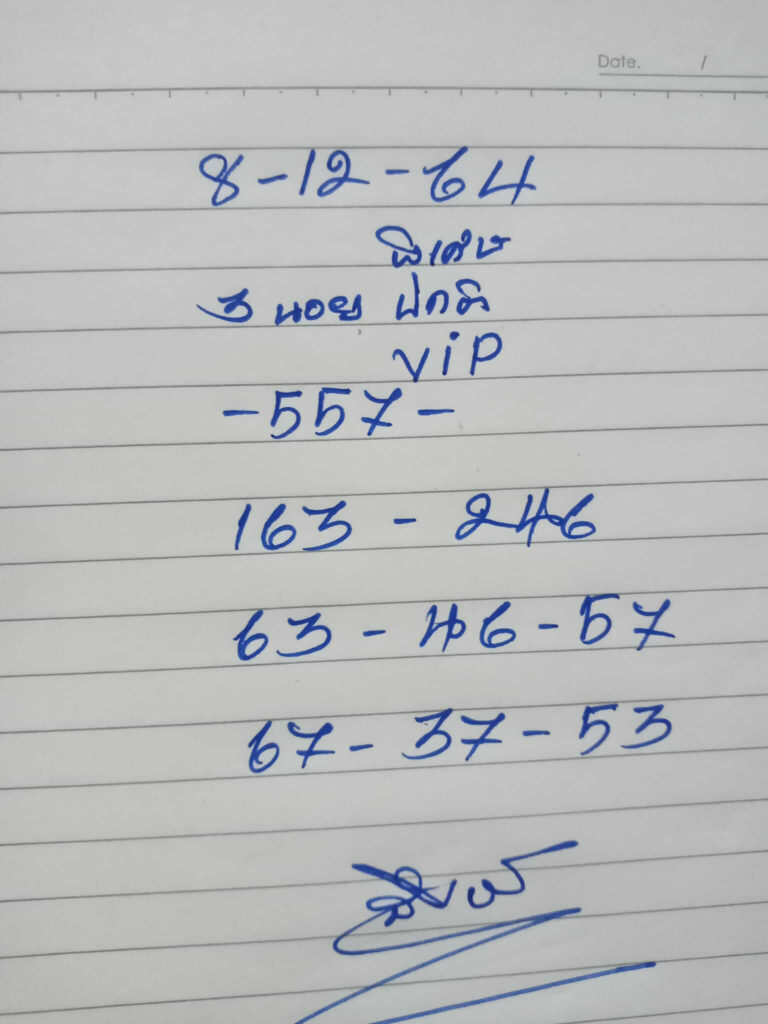 Date. /
8-12-64
พิเศษ
3 นอย ปกติ
VIP
-557-
163 - 246
63 - 46 - 57
67 - 37 - 53